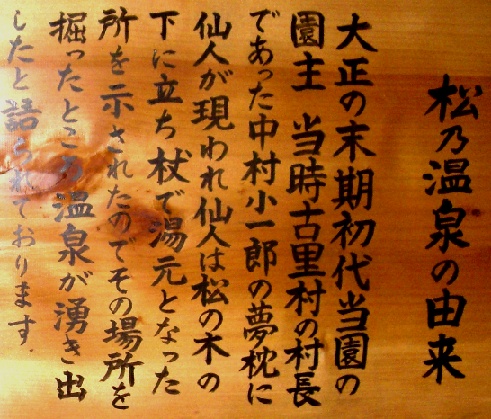 松乃温泉の由来
大正の末期初代当園の
園主　当時古里村の村長
であった中村小一郎の夢枕に
仙人が現われ仙人は松の木の
下に立ち杖で湯元となった
所を示されたのでその場所を
掘ったところ温泉が湧き出
したと語られております.